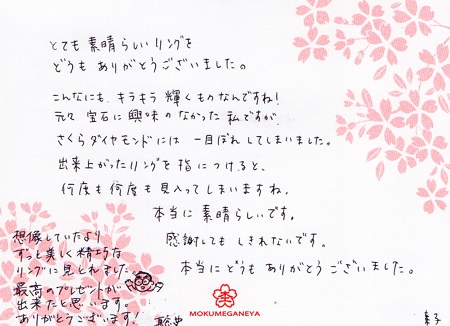 とても 素晴らしいリングを
どうも ありがとうございました。
こんなにも キラキラ 輝くものなんですね!
元々 宝石に 興味のなかった 私ですが、
さくらダイヤモンドには 一目ぼれ してしまいました。
出来上がったリングを 指につけると、
何度も 何度も 見入ってしまいますね。
本当に 素晴らしいです。
感謝しても しきれないです。
本当に どうも ありがとう ございました。
想像していたより
ずっと美しく精巧な
リングに見とれました
最高のプレゼントが
出来たと思います。
ありがとうございます!
MOKUMEGANEYA